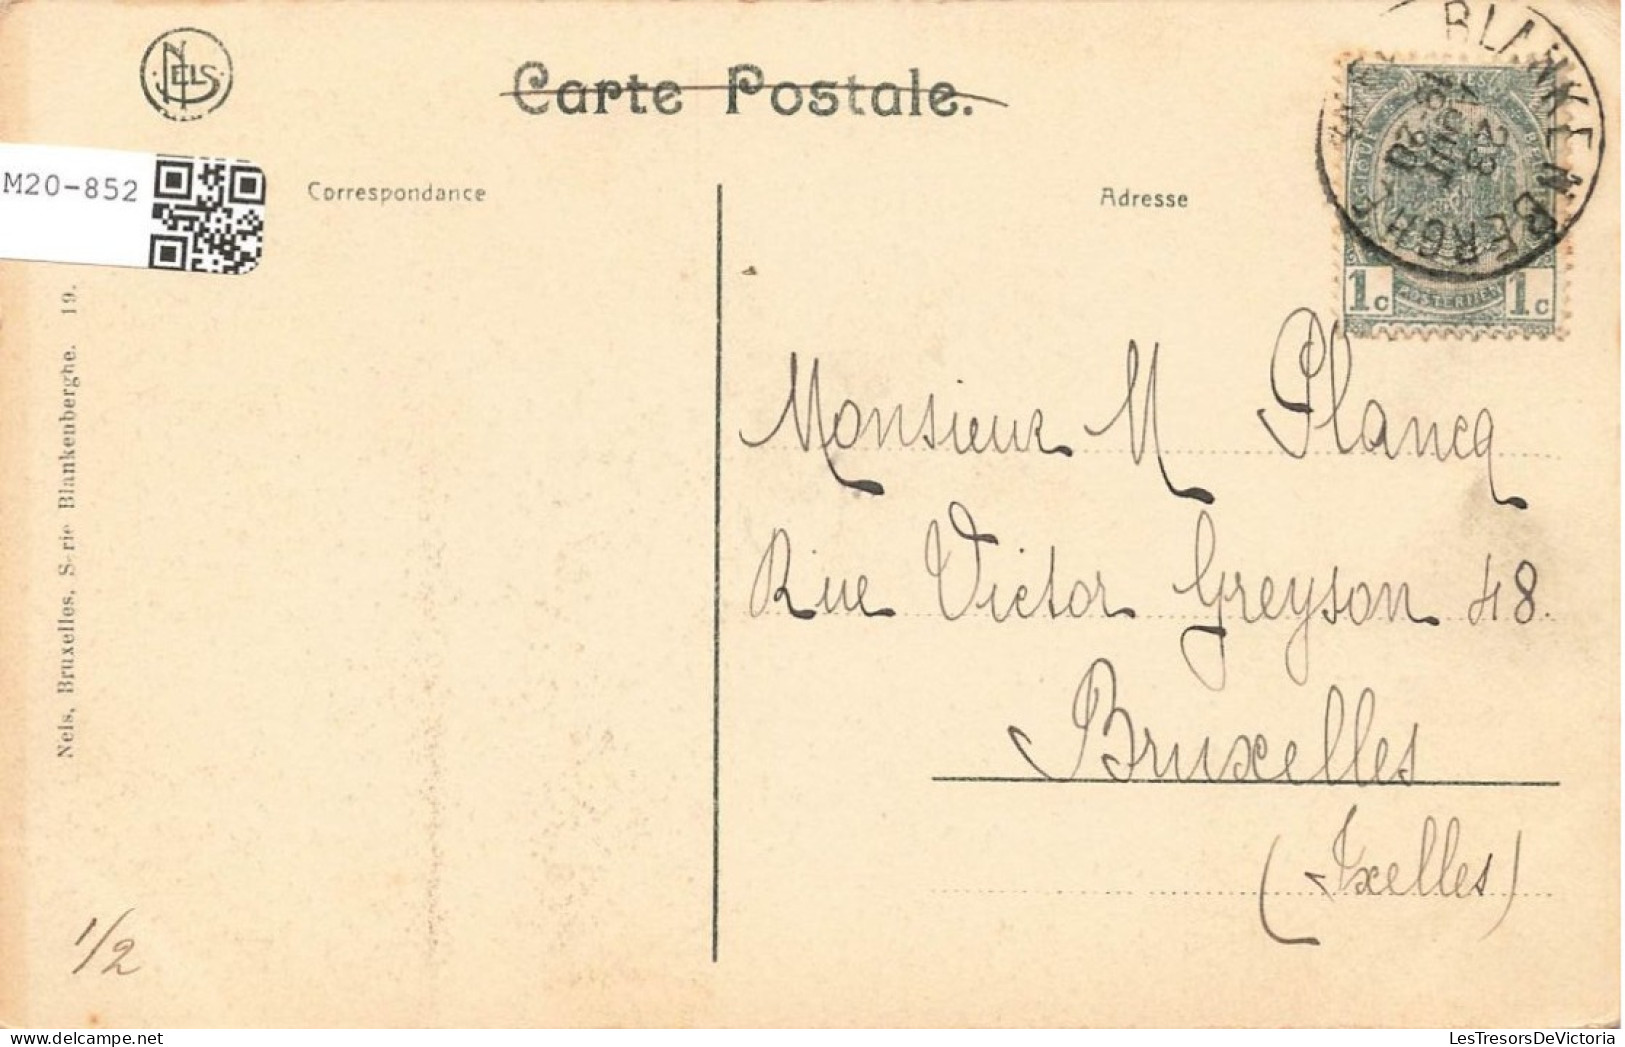 NELS
Carte Postale.
M20-852
Correspondance
Adresse
BLANKENBERGHE
1c POSTERIJEN 1c
Monsieur M Plancq
Rue Victor Greyson 48.
Bruxelles
(Ixelles)
Nels, Bruxelles, Serie Blankenberghe. 19.
1/2
LesTresorsDeVictoria